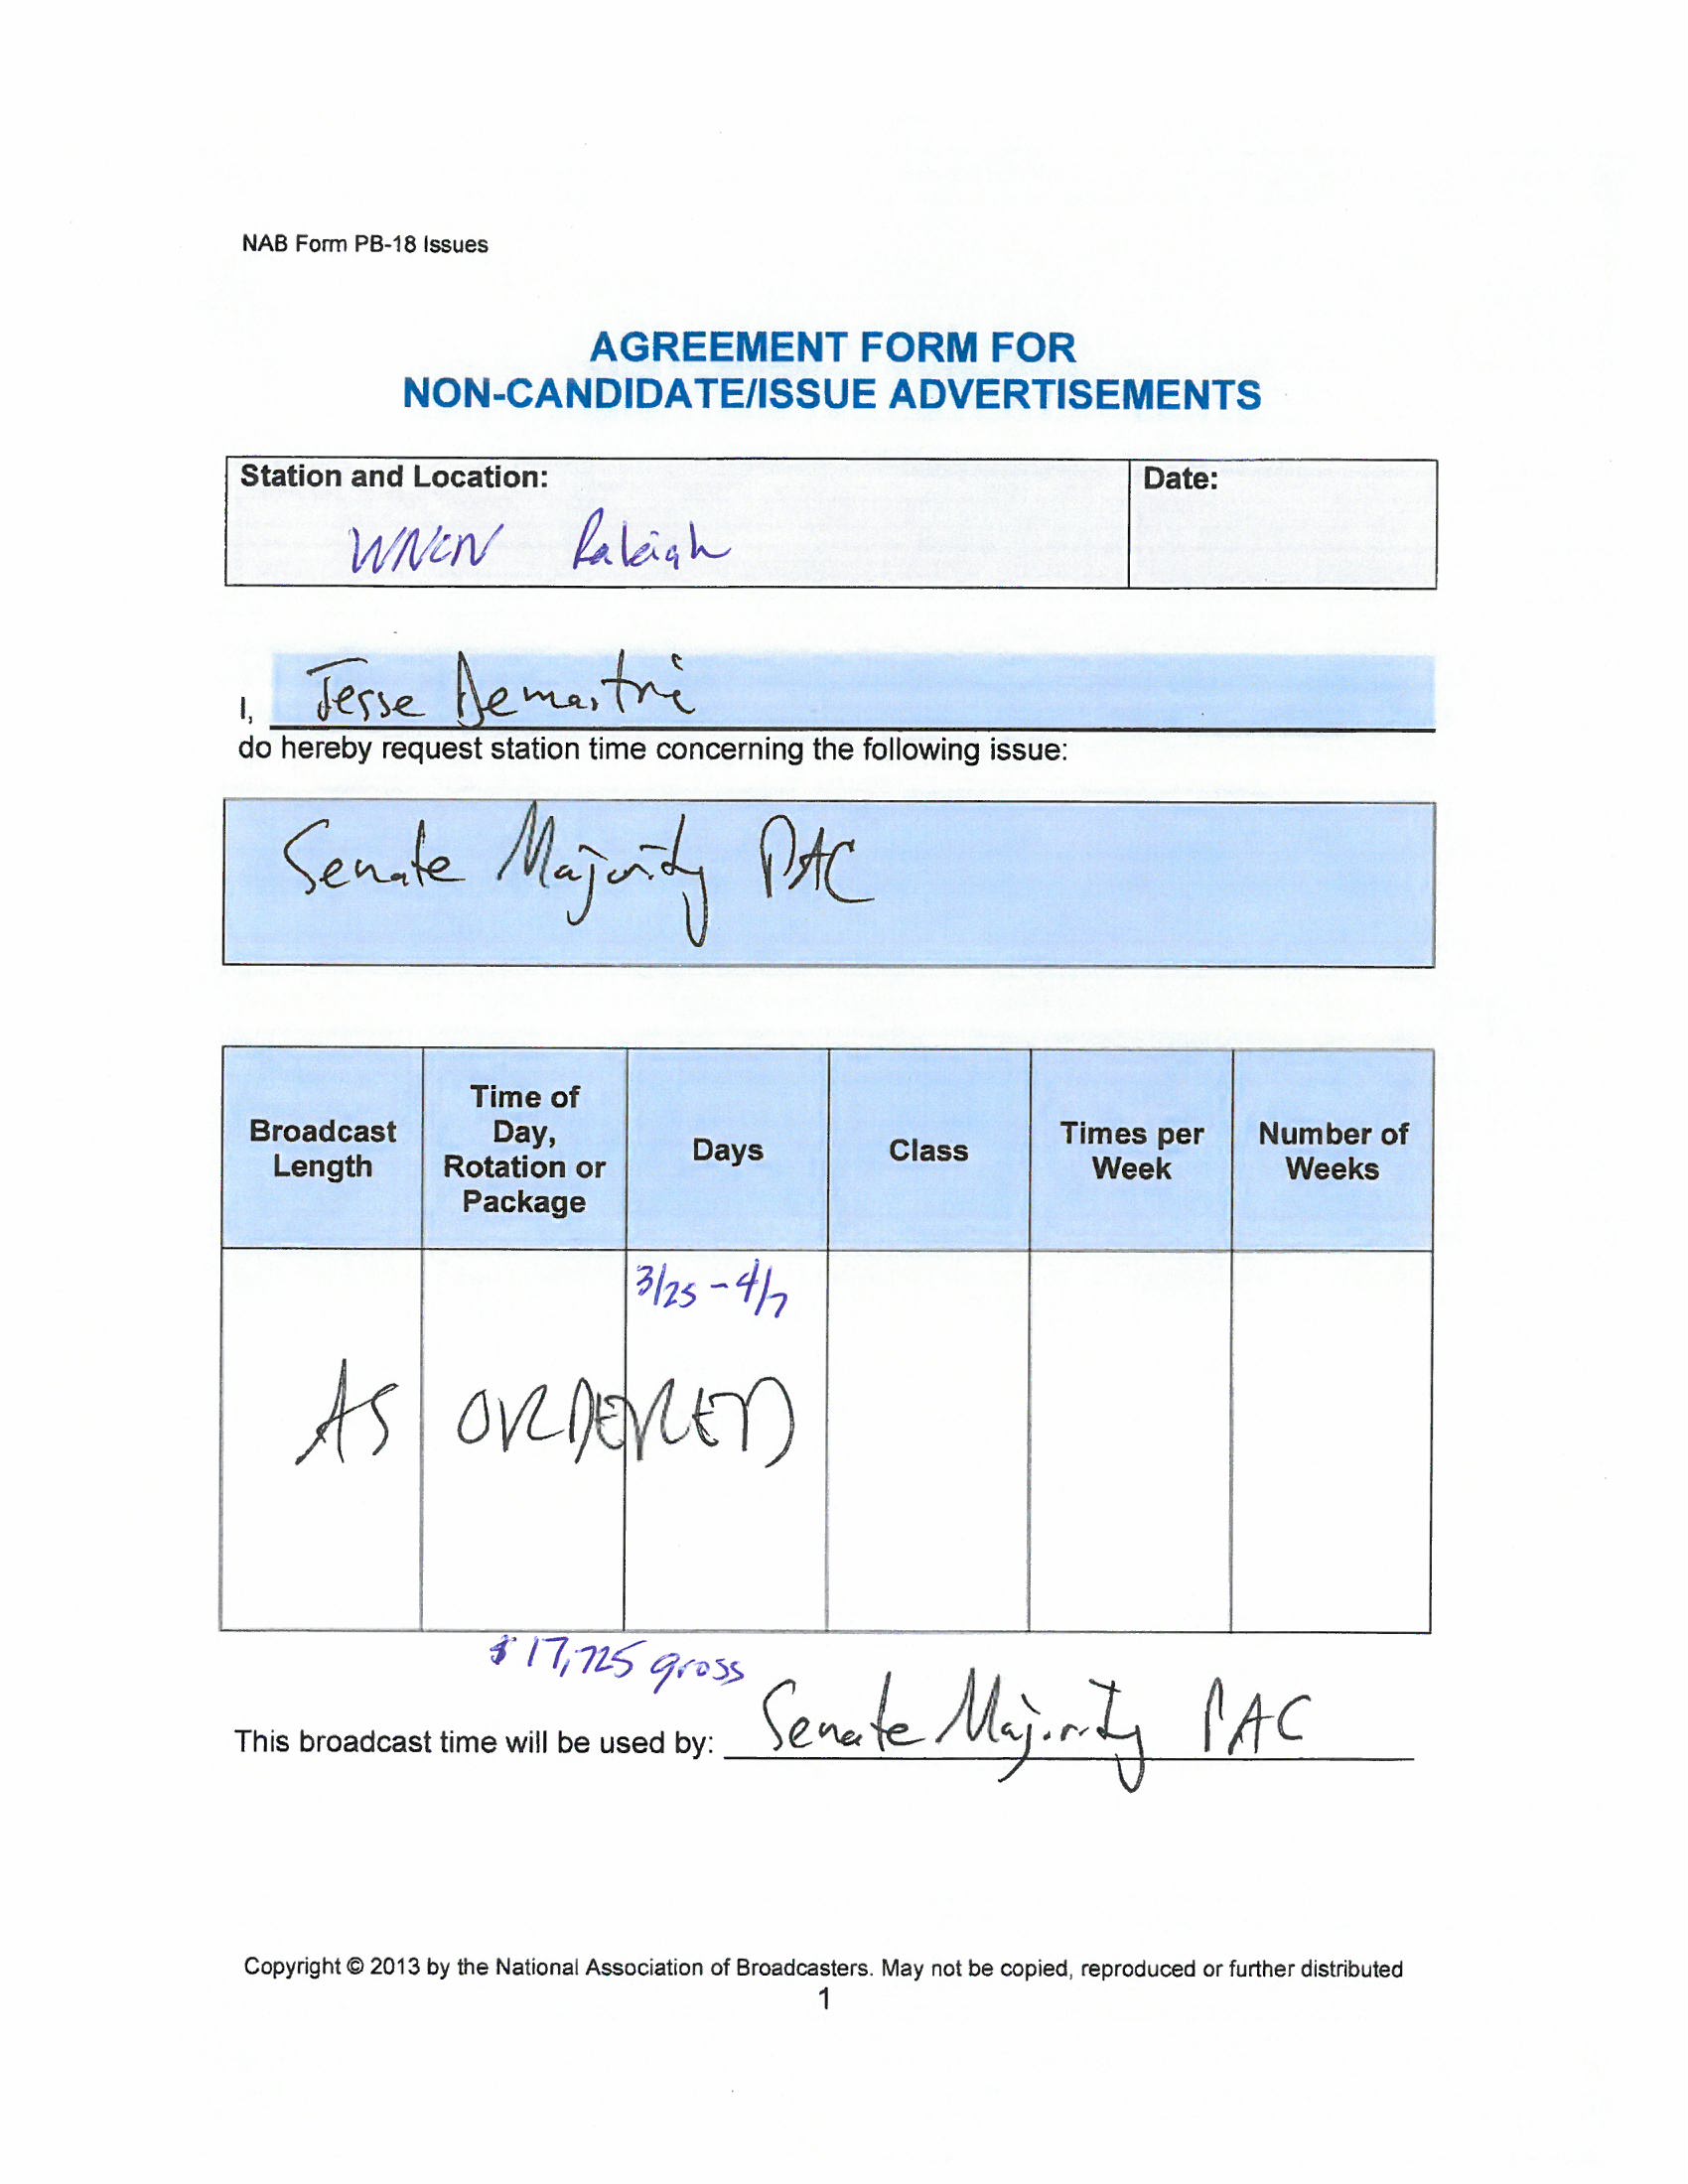 NAB Form PB-18 Issues
AGREEMENT FORM FOR
NON-CANDIDATE/ISSUE ADVERTISEMENTS
Station and Location:
Date:
WNCN Raleigh
I, Jesse Demastrie
do hereby request station time concerning the following issue:
Senate Majority PAC
Broadcast Length
Time of Day, Rotation or Package
Days
Class
Times per Week
Number of Weeks
3/25 - 4/7
AS ORDERED
$17,725 gross
This broadcast time will be used by: Senate Majority PAC
Copyright © 2013 by the National Association of Broadcasters. May not be copied, reproduced or further distributed
1